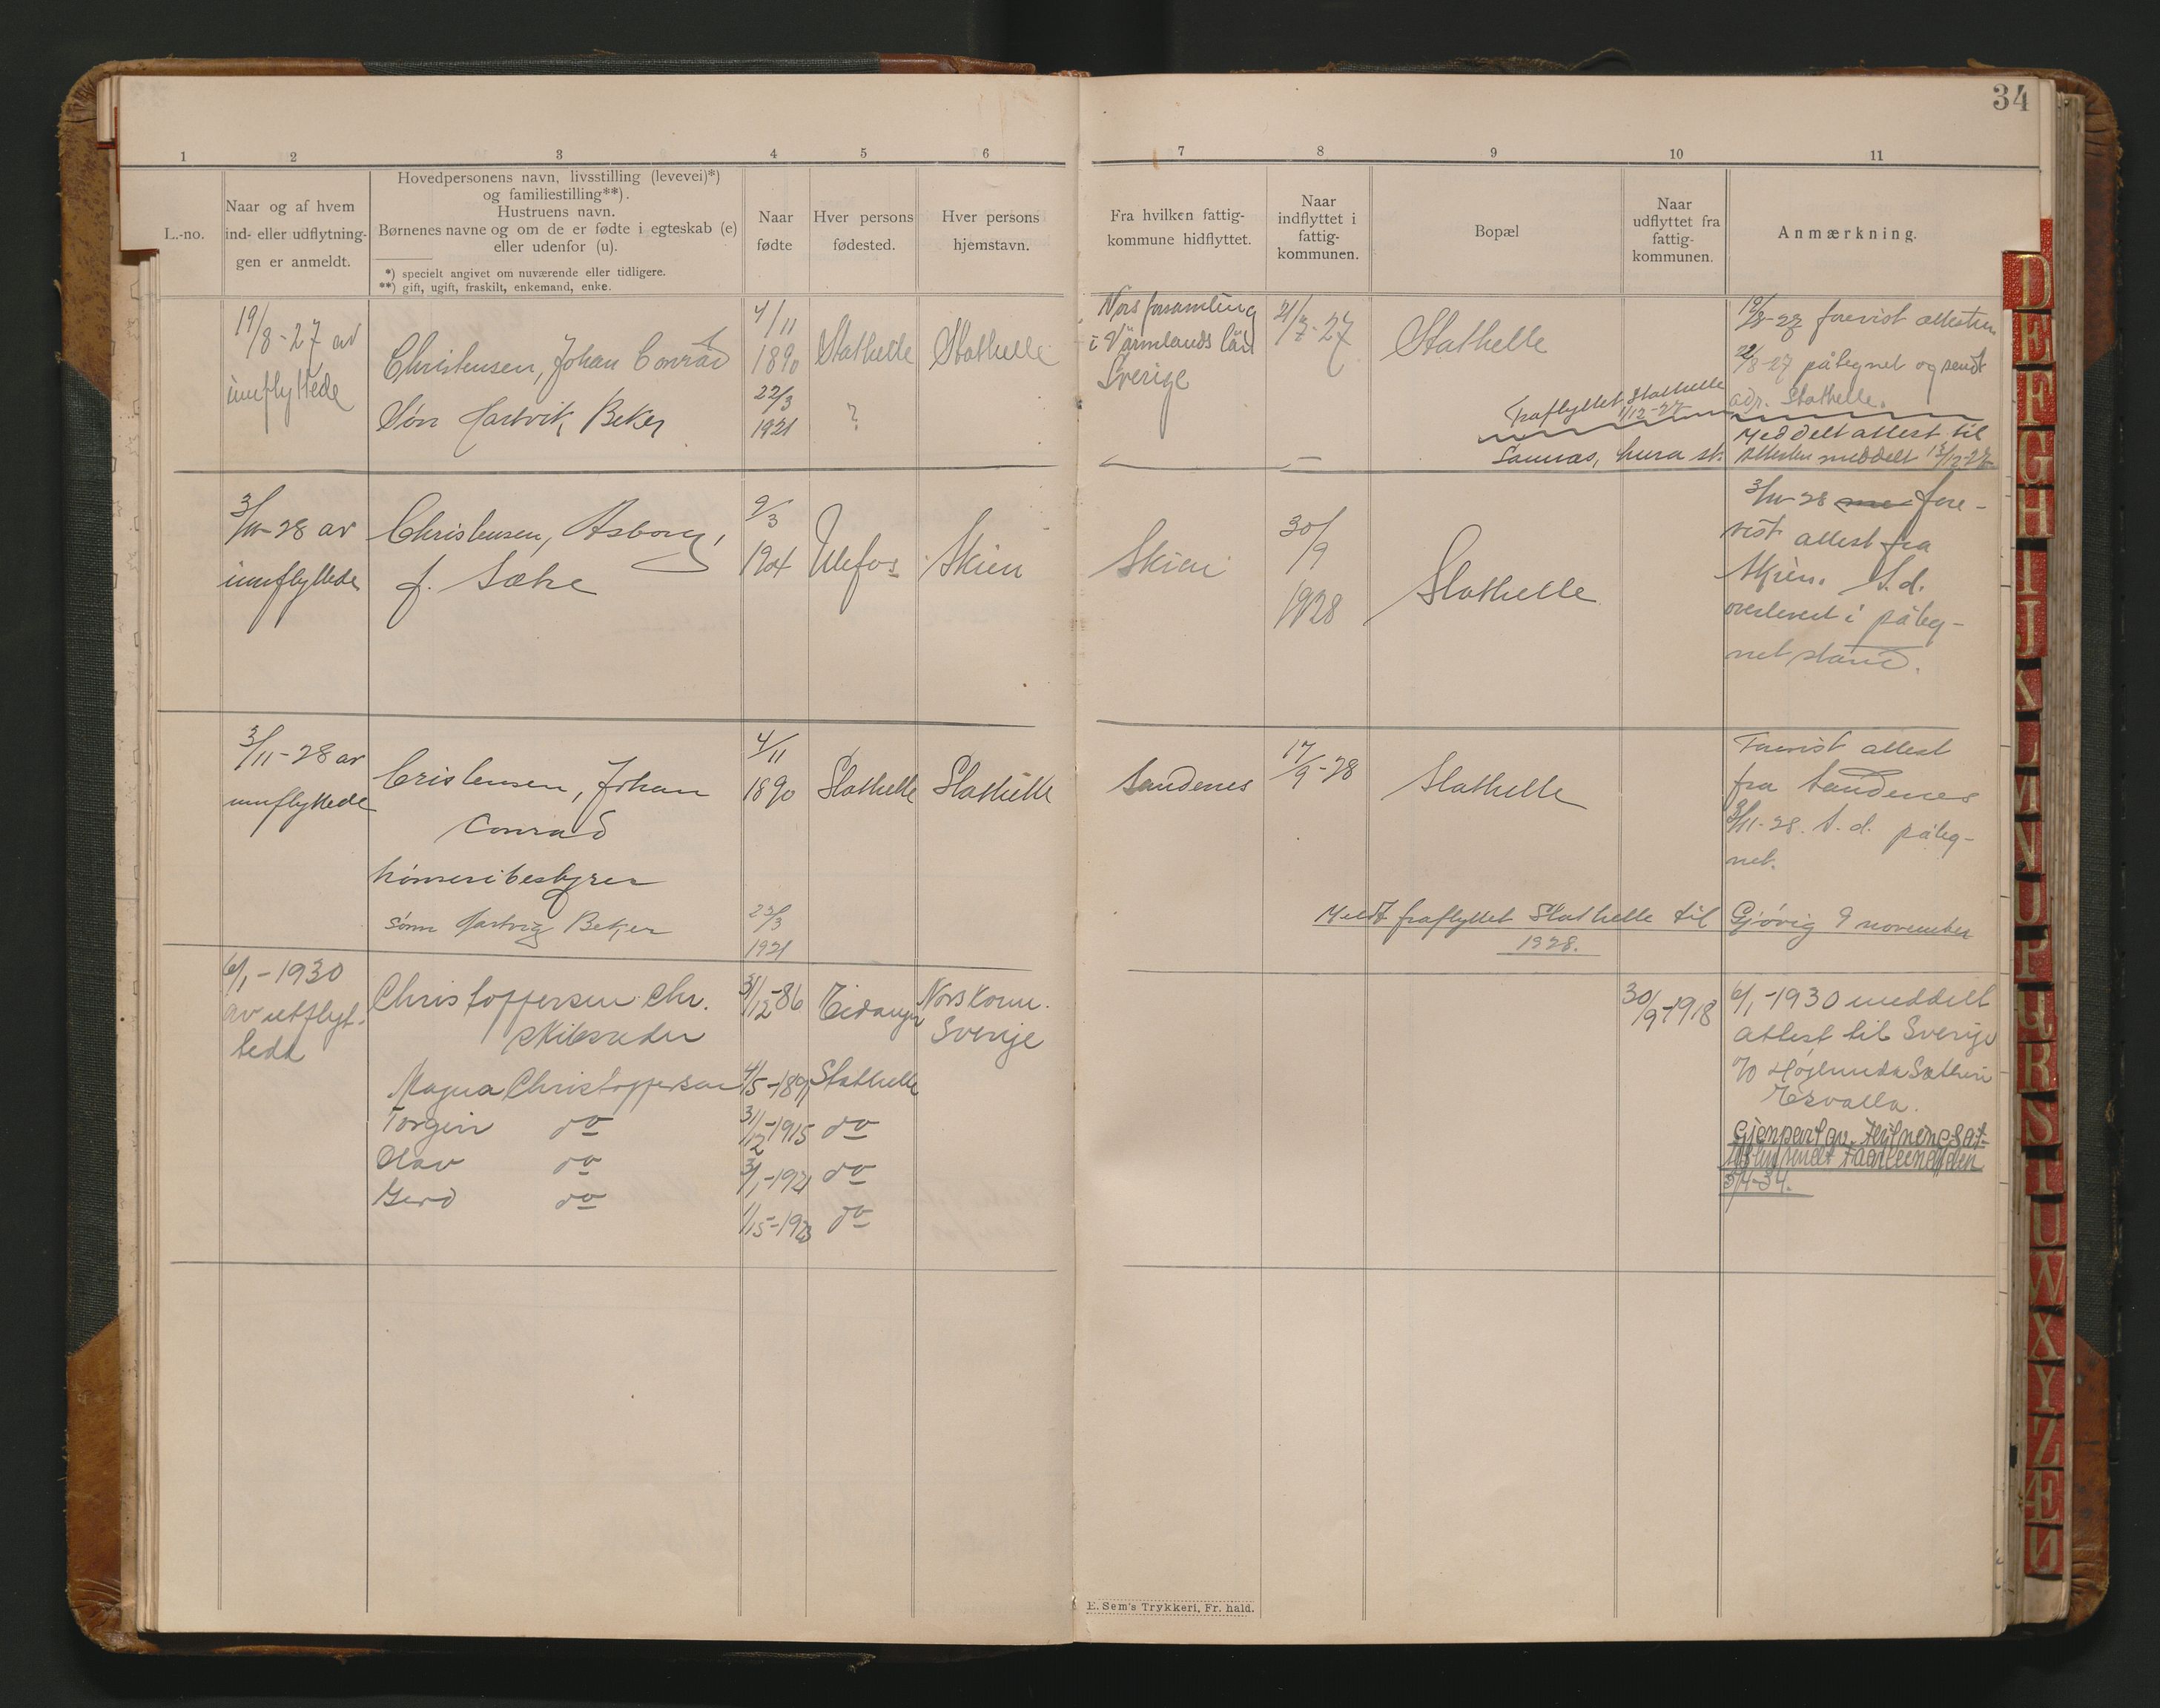 34
1 2 3 4 5 6 7 8 9 10 11
L.-no.
Naar og af hvem
ind- eller udflytning-
gen er anmeldt.
Hovedpersonens navn, livsstilling (levevei)*)
og familiestilling**).
Hustruens navn.
Børnenes navne og om de er fødte i egteskab (e)
eller udenfor (u).
*) specielt angivet om nuværende eller tidligere.
**) gift, ugift, fraskilt, enkemand, enke.
Naar
fødte
Hver persons
fødested.
Hver persons
hjemstavn.
Fra hvilken fattig-
kommune hidflyttet.
Naar
indflyttet i
fattig-
kommunen.
Bopæl
Naar
udflyttet fra
fattig-
kommunen.
Anmærkning.
19/8-27 av
innflyttede
Christensen, Johan Conrad
Søn Hartvik, Beker
4/11
1890
22/3
1921
Stathelle
?
Stathelle
Nors forsamling
i Värmlands län
Sverige
21/7-27
Stathelle
Fraflyttet Stathelle
1/12-27
19/8-27 forevist attesten
22/8-27 påtegnet og sendt
adr. Stathelle.
Meddelt attest til
attesten meddelt 13/12-27
3/10-28 av
innflyttede
Christensen, Asborg,
f. Sætre
9/3
1904
Ulefos
Skien
Skien
30/9
1928
Stathelle
3/10-28 fore-
vist attest fra
Skien. S.d.
overlevert i påteg-
net stand.
3/11-28 av
innflyttede
Cristensen, Johan
Conrad
hønseribestyrer
sønn Hartvig Beker
4/11
1890
23/3
1921
Stathelle
Stathelle
Sandenes
17/9-28
Stathelle
Forevist attest
fra Sandenes
3/11-28. S.d. påteg-
net.
Meldt fraflyttet Stathelle til Gjøvig 9 november
1928.
6/1-1930
av utflyt-
tedd
Christoffersen Chr.
skibsreder
Magna Christoffersen
Torgeir do
Olav do
Gerd do
31/12-86
4/5-1891
31/12-1915
3/1-1921
1/5-1923
Eidanger
Stathelle
do
do
do
Nors Kom.
Sverige
30/9-1918
6/1-1930 meddelt
attest til Sverige
c/o Höglunda Sätteri
Edsvalla.
Gjenpart av
3/4-34.
E. Sem's Trykkeri, Fr. hald.
D
E
F
G
H
I
J
K
L
M
N
O
P
Q
R
S
T
U
W
X
Y
Z
Æ